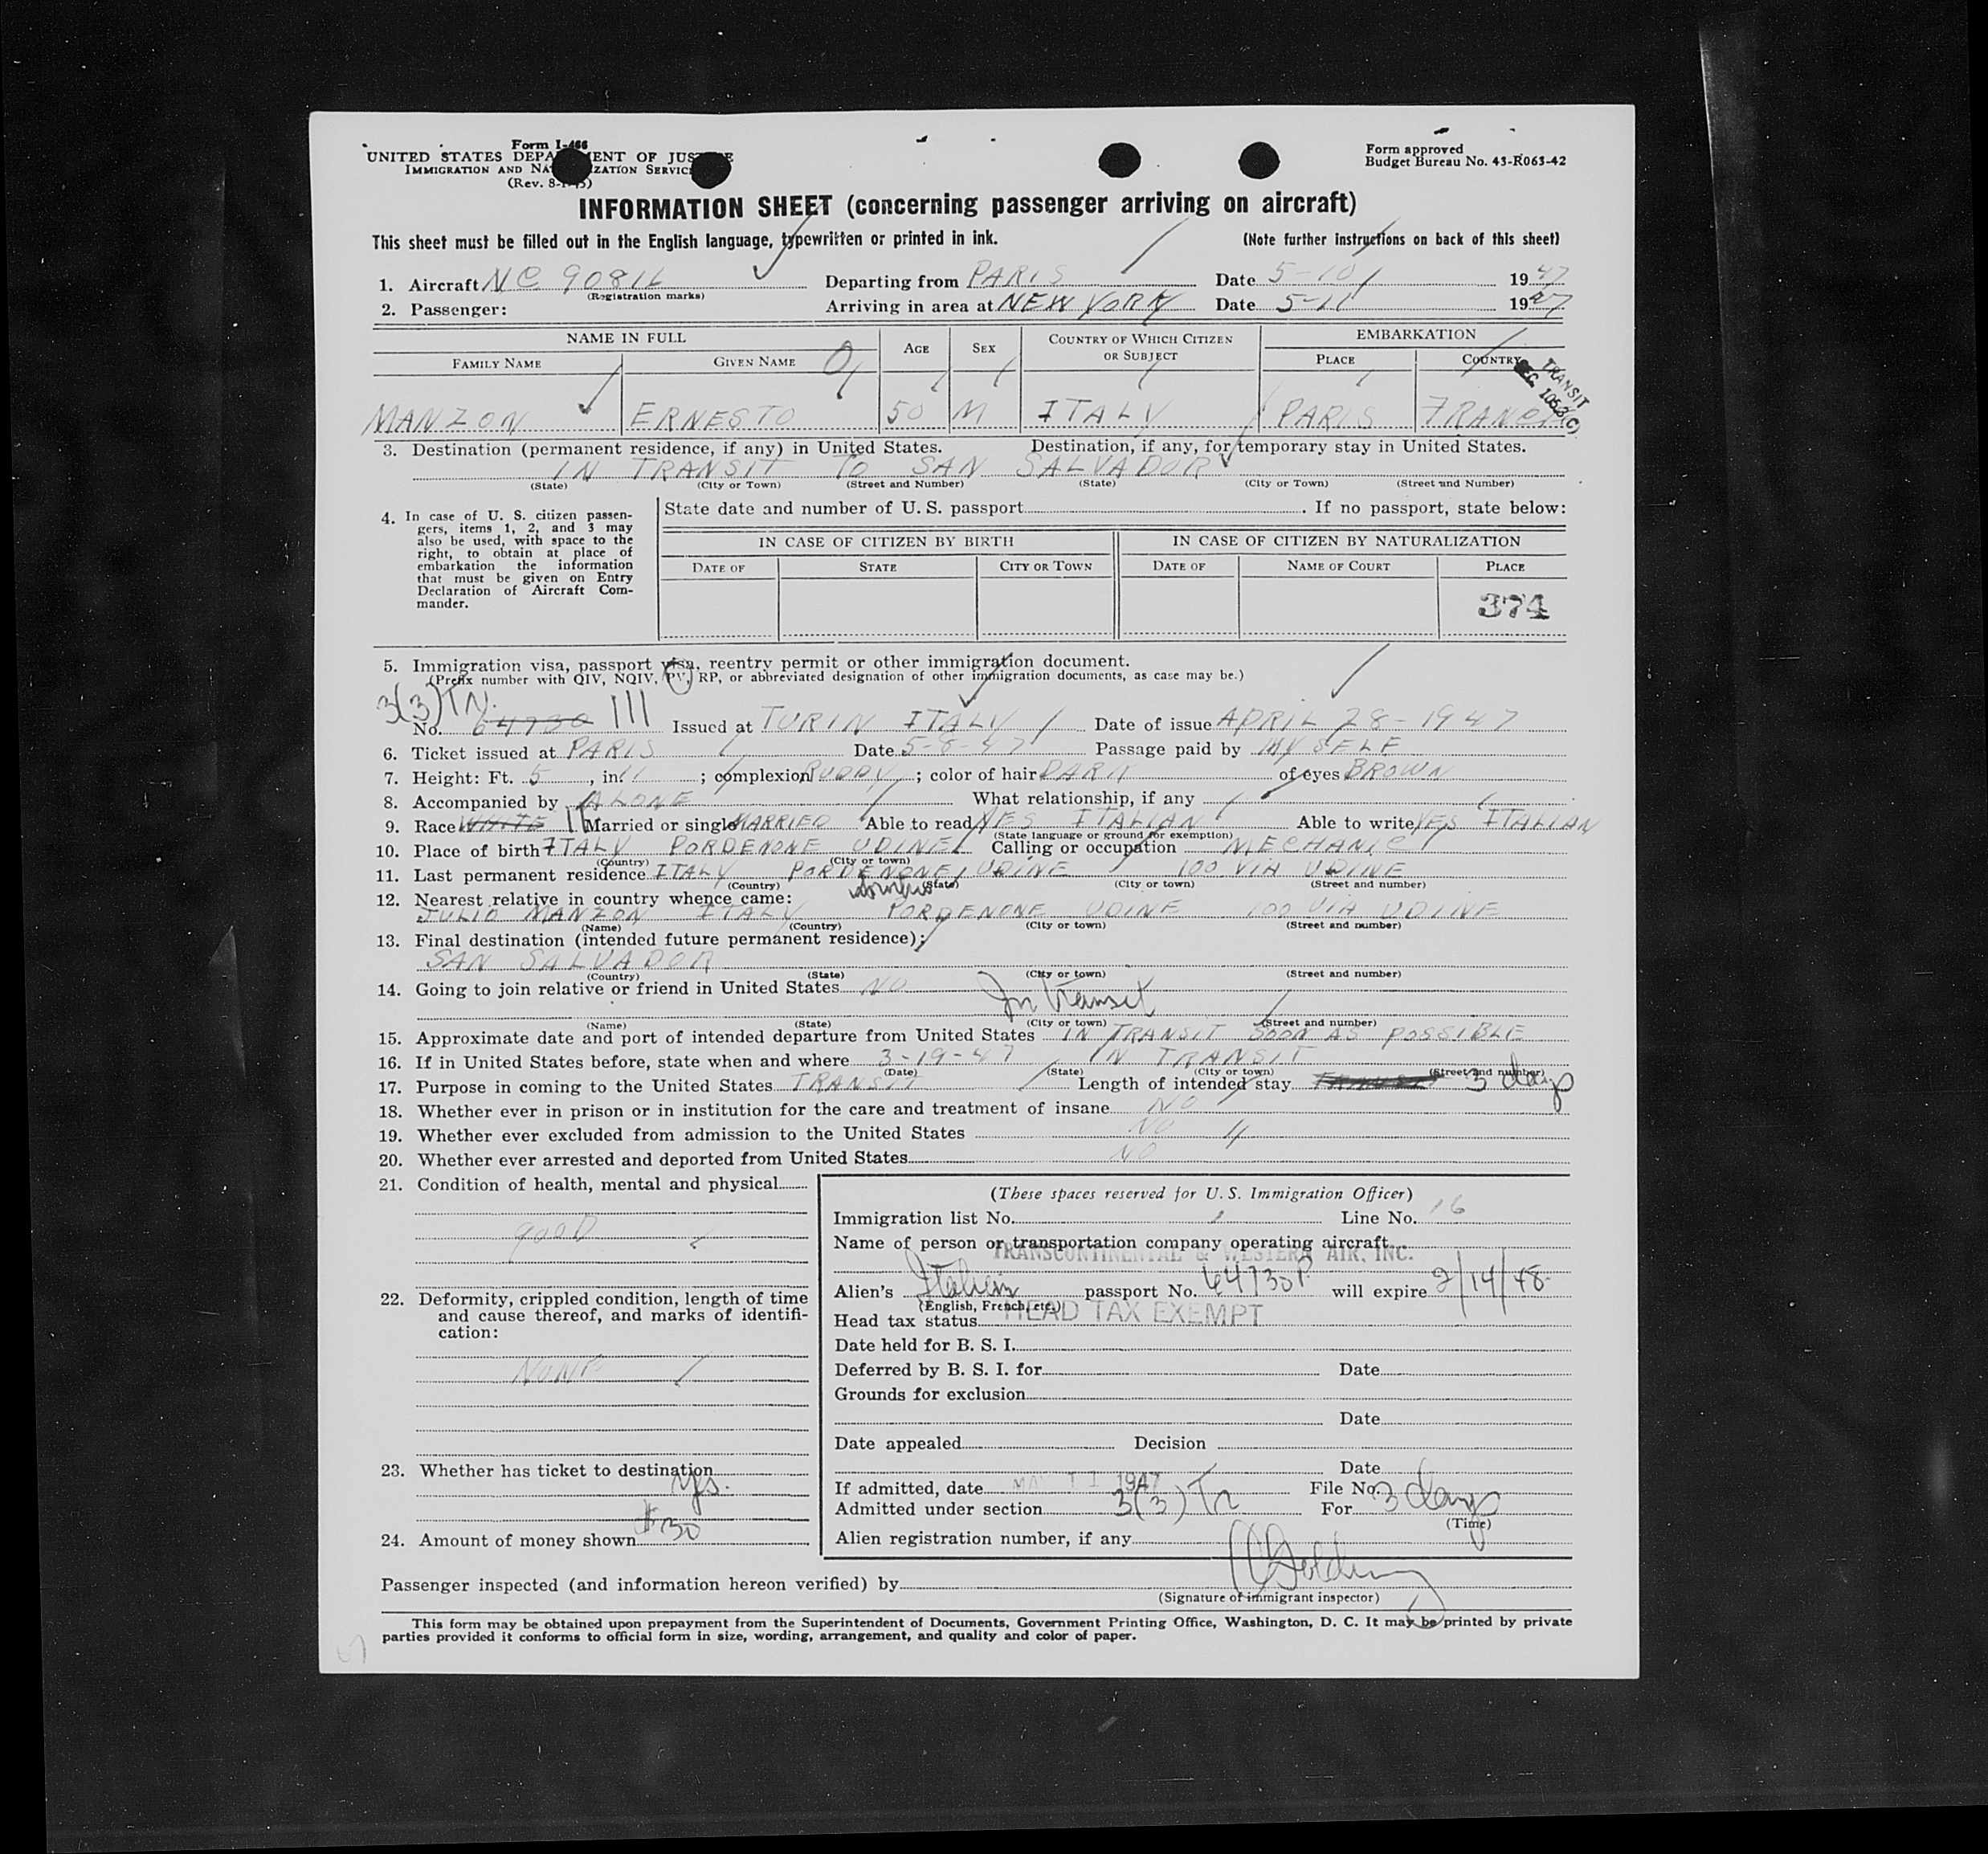 Form I-466
UNITED STATES DEPARTMENT OF JUSTICE
IMMIGRATION AND NATURALIZATION SERVICE
(Rev. 8-1-45)
Form approved
Budget Bureau No. 43-R063-42
INFORMATION SHEET (concerning passenger arriving on aircraft)
This sheet must be filled out in the English language, typewritten or printed in ink. (Note further instructions on back of this sheet)
1. Aircraft NC 90816 Departing from PARIS Date 5-10 1947
(Registration marks)
2. Passenger: Arriving in area at NEW YORK Date 5-11 1947
NAME IN FULL AGE SEX COUNTRY OF WHICH CITIZEN OR SUBJECT EMBARKATION
FAMILY NAME GIVEN NAME PLACE COUNTRY
TRANSIT
MANZON ERNESTO 50 M ITALY PARIS FRANCE
3. Destination (permanent residence, if any) in United States. Destination, if any, for temporary stay in United States.
IN TRANSIT TO SAN SALVADOR
(State) (City or Town) (Street and Number) (State) (City or Town) (Street and Number)
4. In case of U. S. citizen passen-
gers, items 1, 2, and 3 may
also be used, with space to the
right, to obtain at place of
embarkation the information
that must be given on Entry
Declaration of Aircraft Com-
mander.
State date and number of U. S. passport. If no passport, state below:
IN CASE OF CITIZEN BY BIRTH IN CASE OF CITIZEN BY NATURALIZATION
DATE OF STATE CITY OR TOWN DATE OF NAME OF COURT PLACE
374
5. Immigration visa, passport visa, reentry permit or other immigration document.
(Prefix number with QIV, NQIV, PV, RP, or abbreviated designation of other immigration documents, as case may be.)
3(3)TN.
No. 64730 111 Issued at TURIN ITALY Date of issue APRIL 28-1947
6. Ticket issued at PARIS Date 5-8-47 Passage paid by MYSELF
7. Height: Ft. 5, in. 11; complexion RUDDY; color of hair DARK of eyes BROWN
8. Accompanied by ALONE What relationship, if any
9. Race WHITE Married or single MARRIED Able to read YES ITALIAN Able to write YES ITALIAN
(State language or ground for exemption)
10. Place of birth ITALY PORDENONE UDINE Calling or occupation MECHANIC
(Country) (City or town)
11. Last permanent residence ITALY PORDENONE, UDINE 100 VIA UDINE
(Country) (State) (City or town) (Street and number)
12. Nearest relative in country whence came:
JULIO MANZON ITALY PORDENONE UDINE 100 VIA UDINE
(Name) (Country) (City or town) (Street and number)
13. Final destination (intended future permanent residence):
SAN SALVADOR
(Country) (State) (City or town) (Street and number)
14. Going to join relative or friend in United States NO
In transit
(Name) (State) (City or town) (Street and number)
15. Approximate date and port of intended departure from United States IN TRANSIT SOON AS POSSIBLE
16. If in United States before, state when and where 3-19-47 IN TRANSIT
(Date) (State) (City or town) (Street and number)
17. Purpose in coming to the United States TRANSIT Length of intended stay 3 days
18. Whether ever in prison or in institution for the care and treatment of insane NO
19. Whether ever excluded from admission to the United States NO
20. Whether ever arrested and deported from United States NO
21. Condition of health, mental and physical
gooD
22. Deformity, crippled condition, length of time
and cause thereof, and marks of identifi-
cation:
NONE
23. Whether has ticket to destination
yes.
24. Amount of money shown $30
(These spaces reserved for U. S. Immigration Officer)
Immigration list No. 1 Line No. 16
Name of person or transportation company operating aircraft
TRANSCONTINENTAL & WESTERN AIR, INC.
Alien's Italian passport No. 64730P will expire 2/14/48
(English, French, etc.)
Head tax status HEAD TAX EXEMPT
Date held for B. S. I.
Deferred by B. S. I. for Date
Grounds for exclusion
Date
Date appealed Decision
Date
If admitted, date MAY 11 1947 File No.
Admitted under section 3(3) Tr For 3 days
(Time)
Alien registration number, if any
Passenger inspected (and information hereon verified) by
(Signature of immigrant inspector)
This form may be obtained upon prepayment from the Superintendent of Documents, Government Printing Office, Washington, D. C. It may be printed by private
parties provided it conforms to official form in size, wording, arrangement, and quality and color of paper.